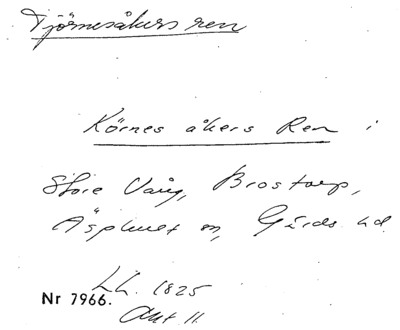 Tjörnesåkers ren
Körnes åkers Ren i
Store Vång, Brostorp,
Äsphult sn, Gärds hd.
LL. 1825
Nr 7966.
Akt 11.